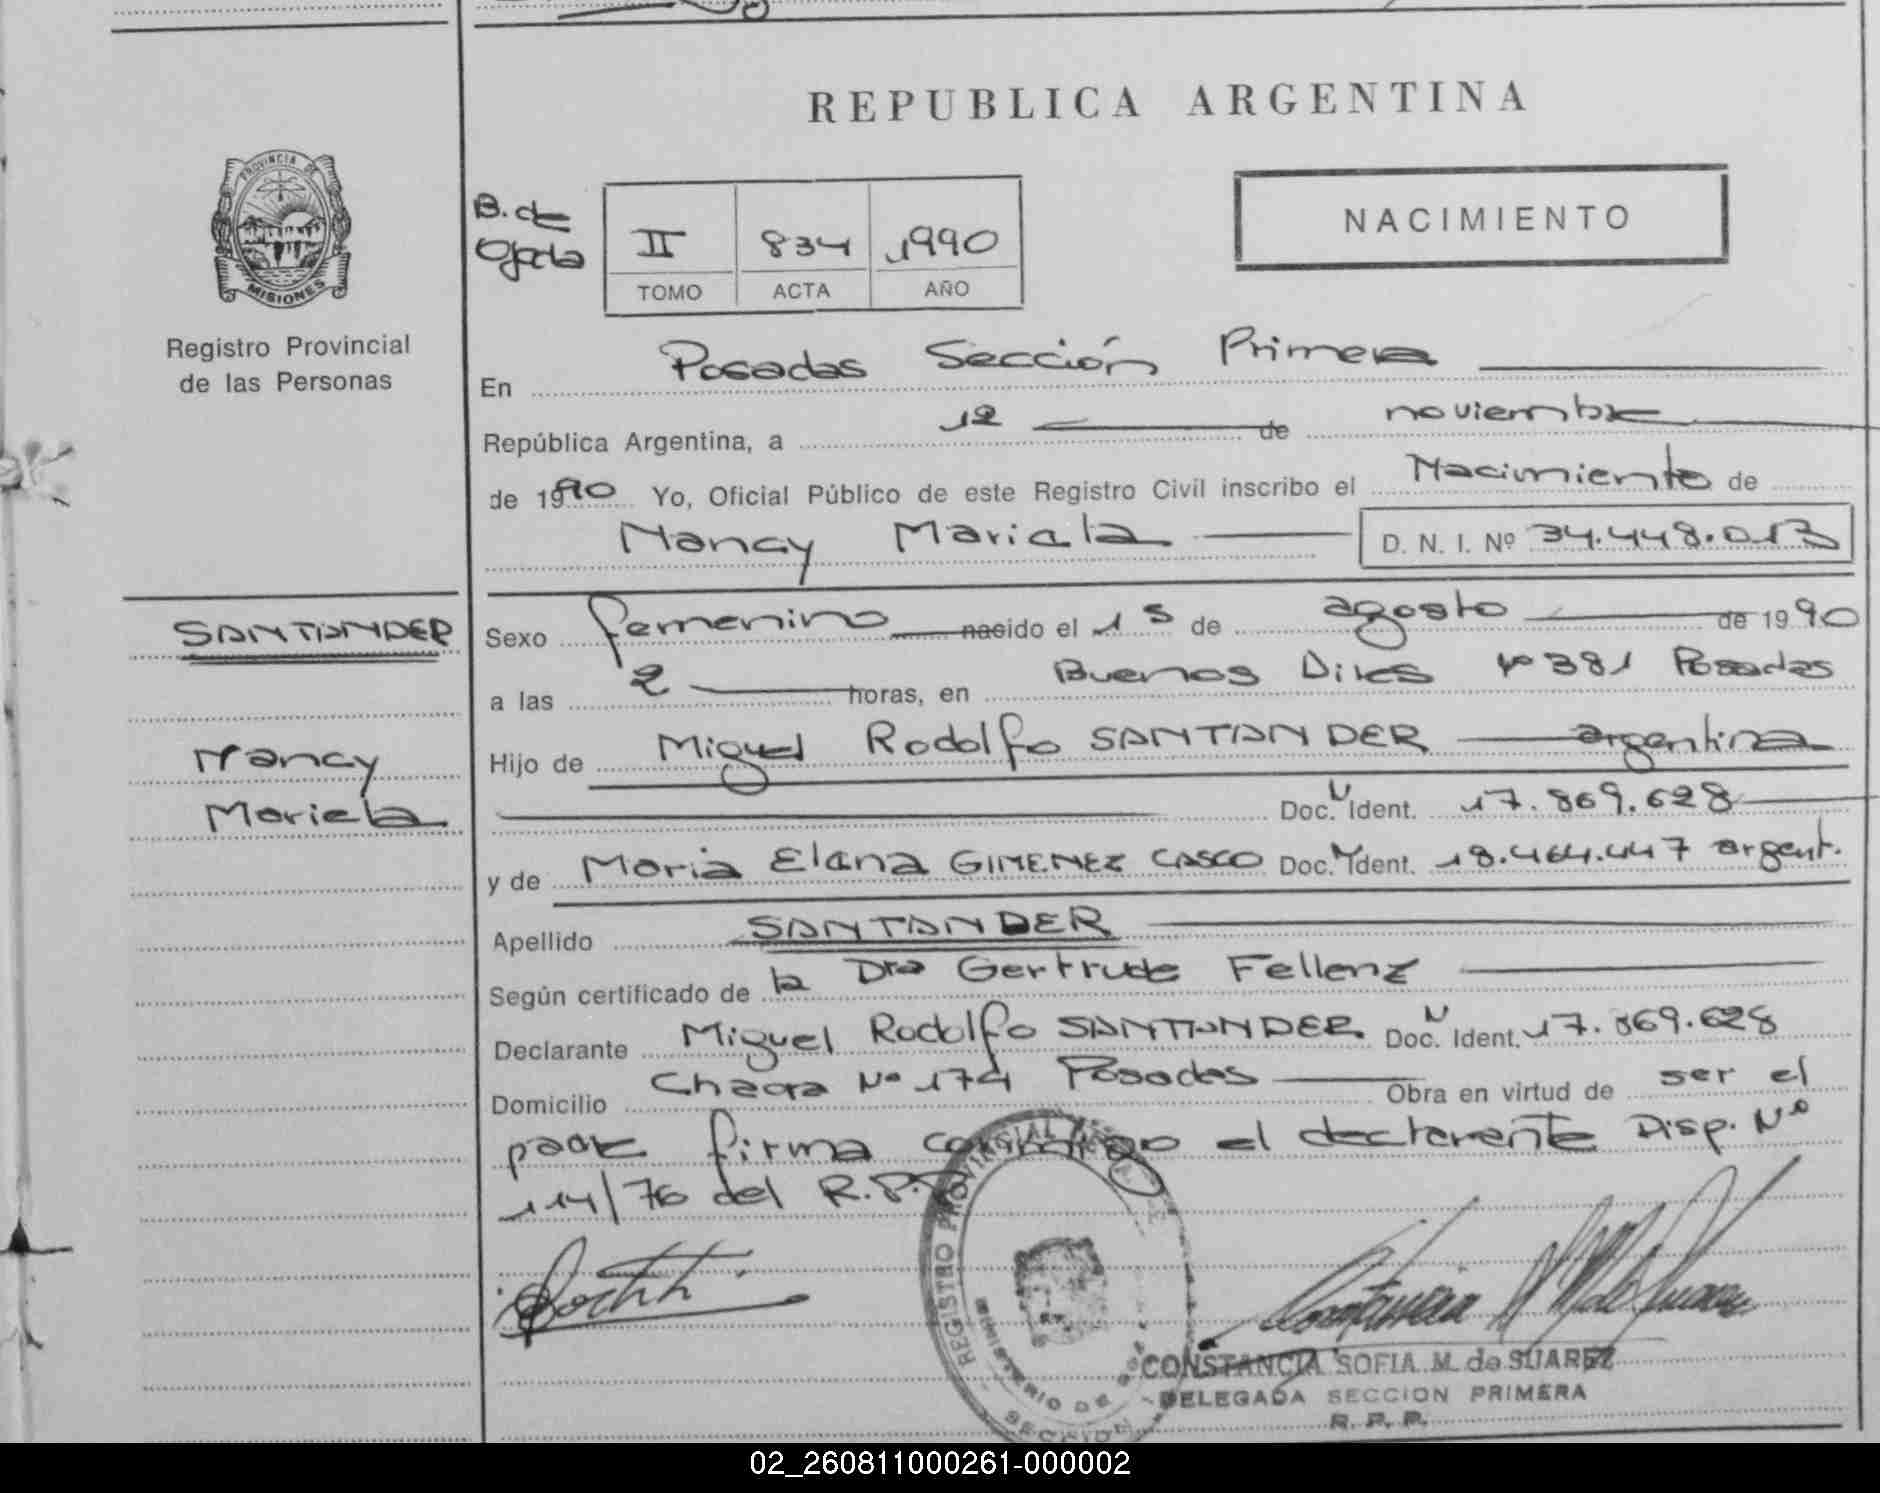 REPUBLICA ARGENTINA
PROVINCIA DE
MISIONES
Registro Provincial
de las Personas
B. de
Ojeda
II 834 1990
TOMO ACTA AÑO
NACIMIENTO
En Posadas Sección Primera
República Argentina, a 12 de noviembre
de 1990 Yo, Oficial Público de este Registro Civil inscribo el Nacimiento de
Nancy Mariela D. N. I. Nº 34.448.013
SANTANDER
Nancy
Mariela
Sexo femenino nacido el 15 de agosto de 1990
a las 2 horas, en Buenos Aires Nº 381 Posadas
Hijo de Miguel Rodolfo SANTANDER argentina
Doc. N Ident. 17.869.628
y de Maria Elena GIMENEZ CASCO Doc. N Ident. 18.464.447 argent.
Apellido SANTANDER
Según certificado de la Dra Gertrude Fellenz
Declarante Miguel Rodolfo SANTANDER Doc. N Ident. 17.869.628
Domicilio Chacra Nº 174 Posadas Obra en virtud de ser el
padre firma conmigo el declarante Disp. Nº
114/76 del R.P.P.
REGISTRO PROVINCIAL
MINISTERIO DE
SECCION
CONSTANCIA SOFIA M. de SUAREZ
DELEGADA SECCION PRIMERA
R. P. P.
02_260811000261-000002